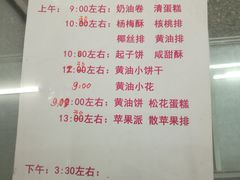 上午： 9:00左右：奶油卷 清蛋糕
10:00左右：杨梅酥 核桃排
椰丝排 黄油排
10:00左右：起子饼 咸甜酥
12:00左右：黄油小饼干
9:00 黄油小花
9:00左右：黄油饼 松花蛋糕
13:00左右：苹果派 散苹果排
下午：3:30左右：